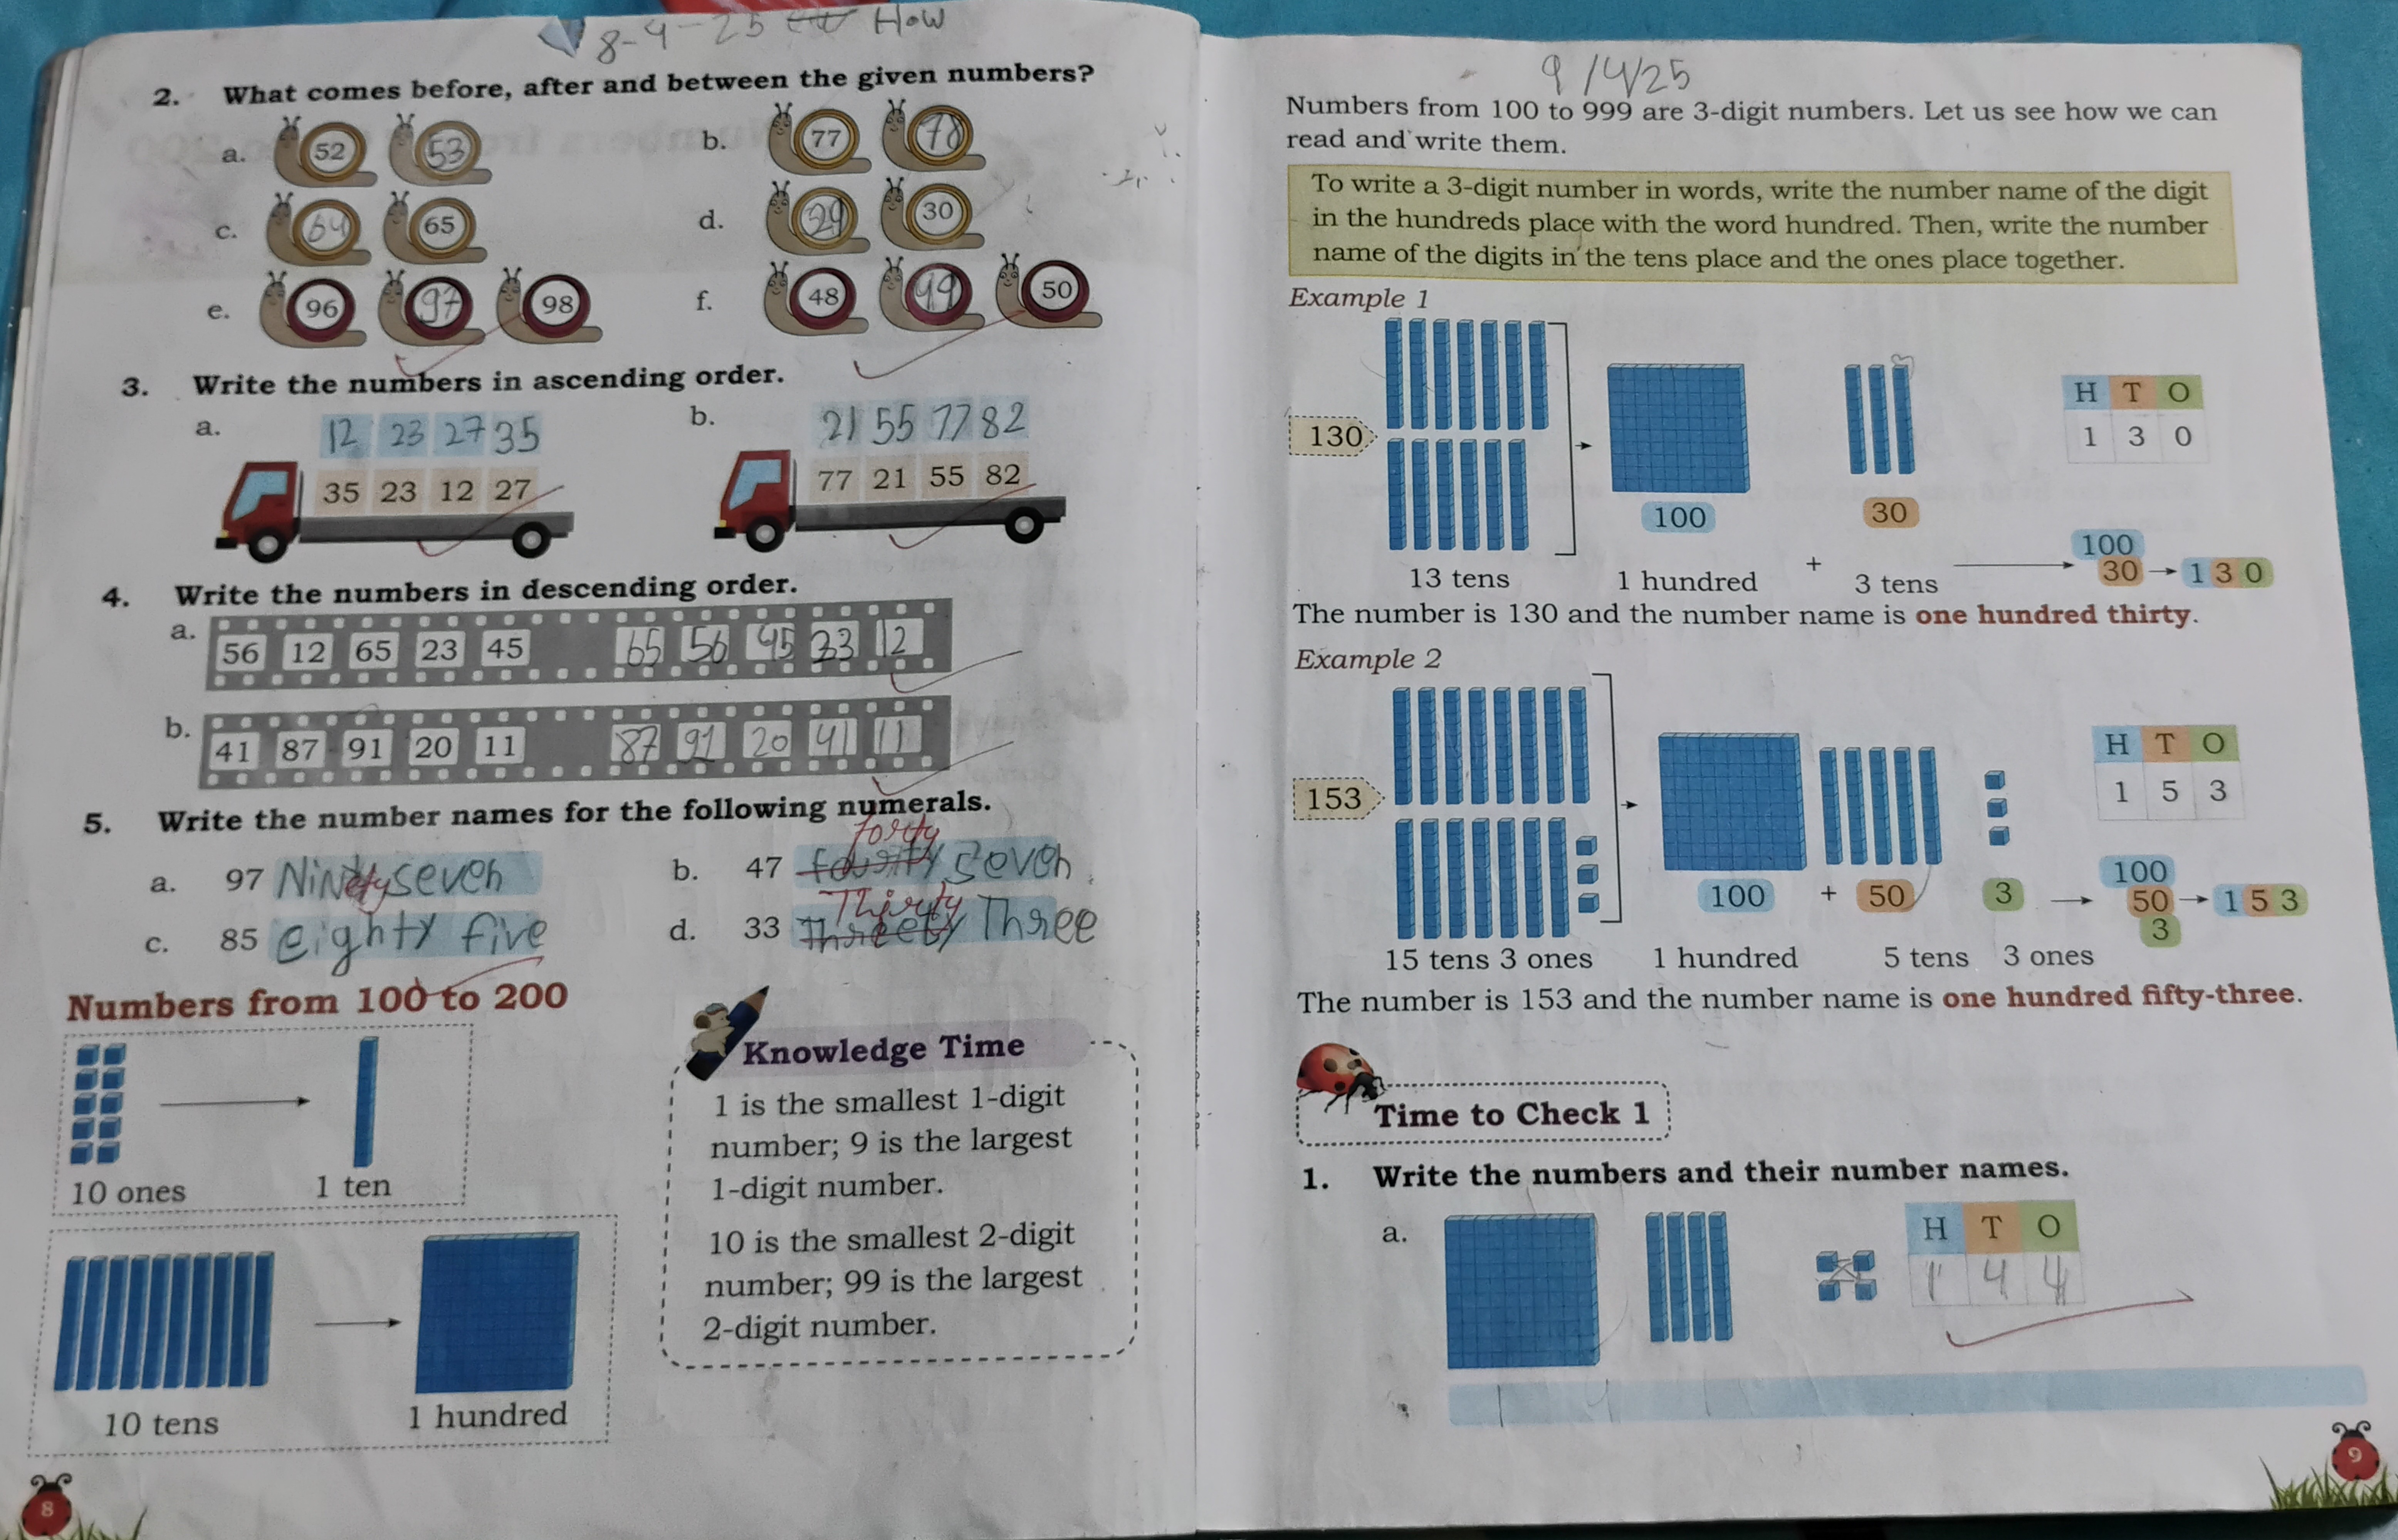 8-4-25 How
2. What comes before, after and between the given numbers?
a. 52 53 b. 77 78
c. 64 65 d. 29 30
e. 96 97 98 f. 48 49 50
3. Write the numbers in ascending order.
a. 12 23 27 35 b. 21 55 77 82
35 23 12 27 77 21 55 82
4. Write the numbers in descending order.
a. 56 12 65 23 45 65 56 45 23 12
b. 41 87 91 20 11 87 91 20 41 11
5. Write the number names for the following numerals.
forty
a. 97 Ninety seven b. 47 seven
Thirty
c. 85 eighty five d. 33 Threety Three
Numbers from 100 to 200
10 ones 1 ten
10 tens 1 hundred
Knowledge Time
1 is the smallest 1-digit
number; 9 is the largest
1-digit number.
10 is the smallest 2-digit
number; 99 is the largest
2-digit number.
8
9/4/25
Numbers from 100 to 999 are 3-digit numbers. Let us see how we can
read and write them.
To write a 3-digit number in words, write the number name of the digit
in the hundreds place with the word hundred. Then, write the number
name of the digits in the tens place and the ones place together.
Example 1
H T O
130 1 3 0
100 30
100
30 → 1 3 0
13 tens 1 hundred + 3 tens
The number is 130 and the number name is one hundred thirty.
Example 2
H T O
153 1 5 3
100
100 + 50 3 50 → 1 5 3
3
15 tens 3 ones 1 hundred 5 tens 3 ones
The number is 153 and the number name is one hundred fifty-three.
Time to Check 1
1. Write the numbers and their number names.
a. H T O
1 4 4
1 4
9